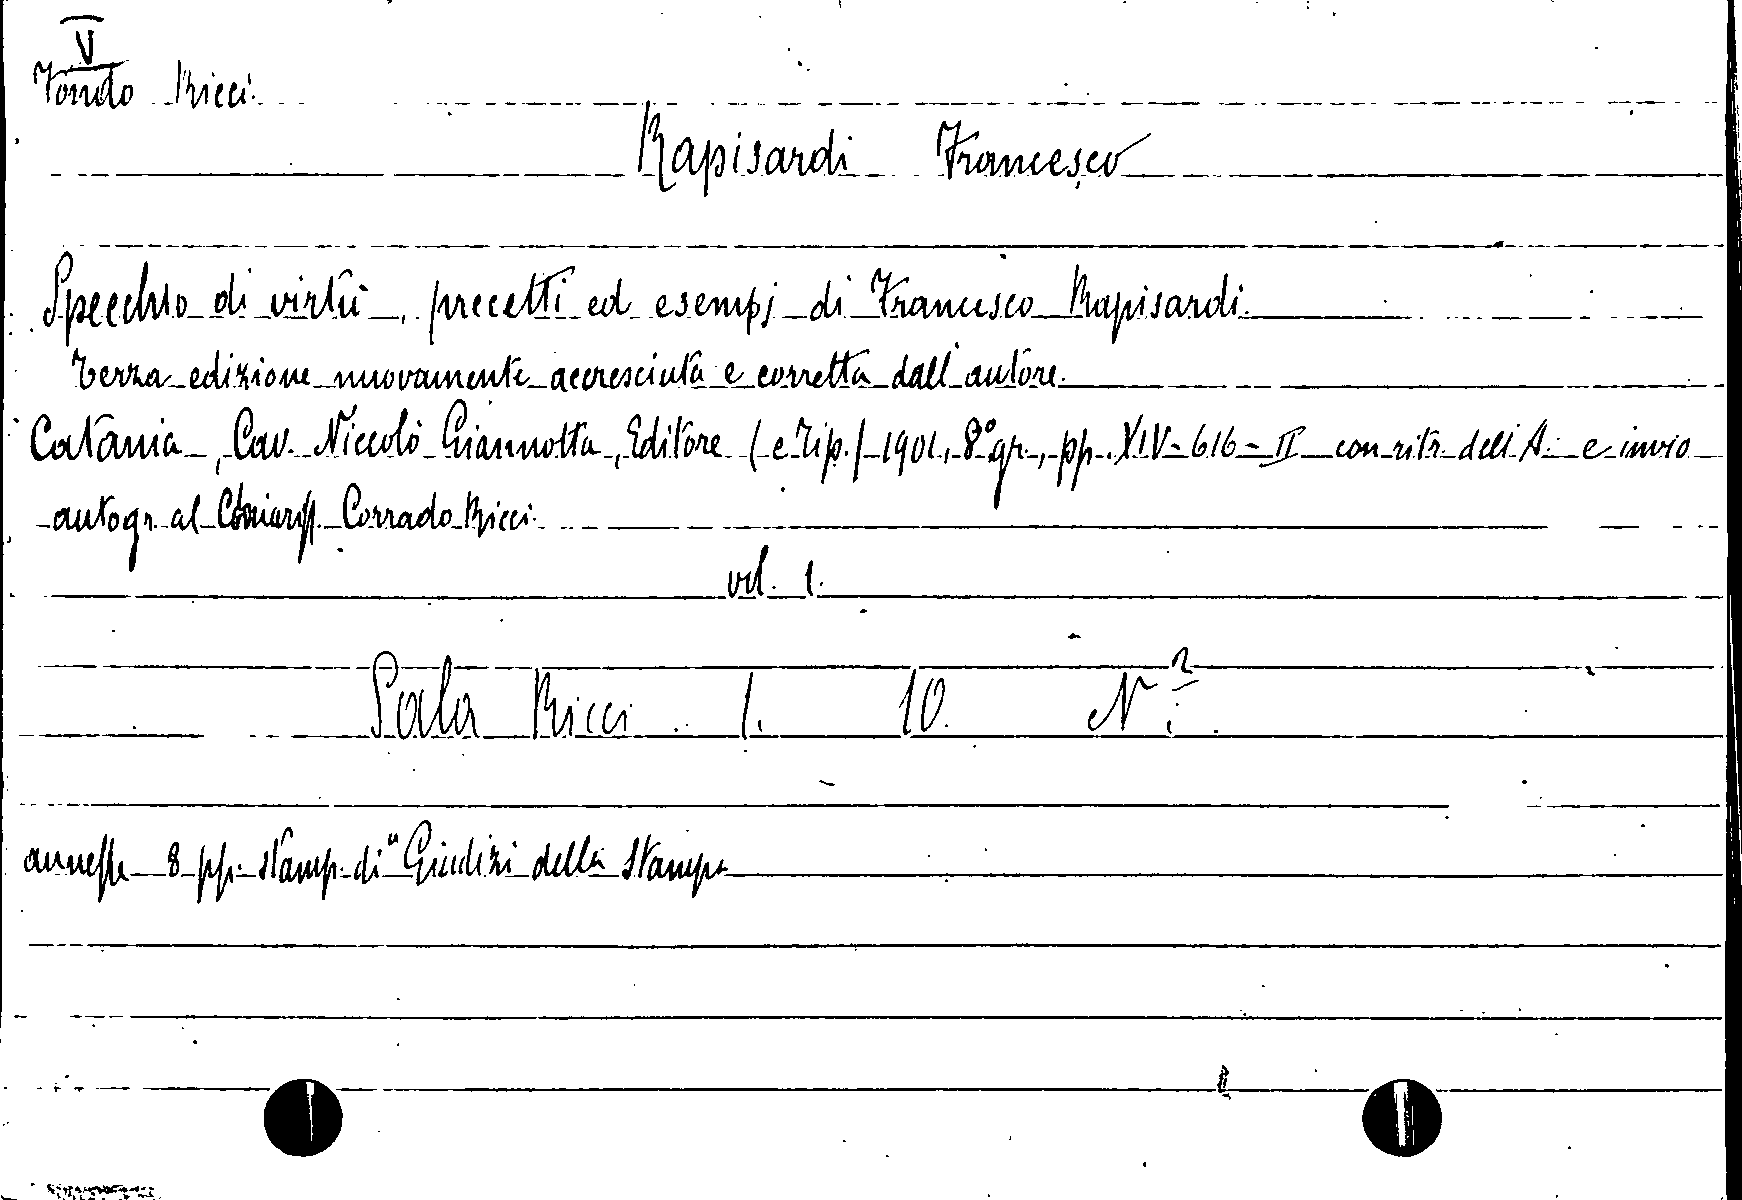 V
Fondo Ricci.
Rapisardi Francesco
Specchio di virtù, precetti ed esempj di Francesco Rapisardi.
Terza edizione nuovamente accresciuta e corretta dall'autore.
Catania, Cav. Niccolò Giannotta, Editore (e Tip.) 1901, 8° gr., pp. XIV-616-II con ritr. dell'A. e invio
autogr. al Corrado Ricci.
vol. 1.
Sala Ricci. 1. 10. N.2
annesse 8 pp. stamp. di "Giudizi della Stampa